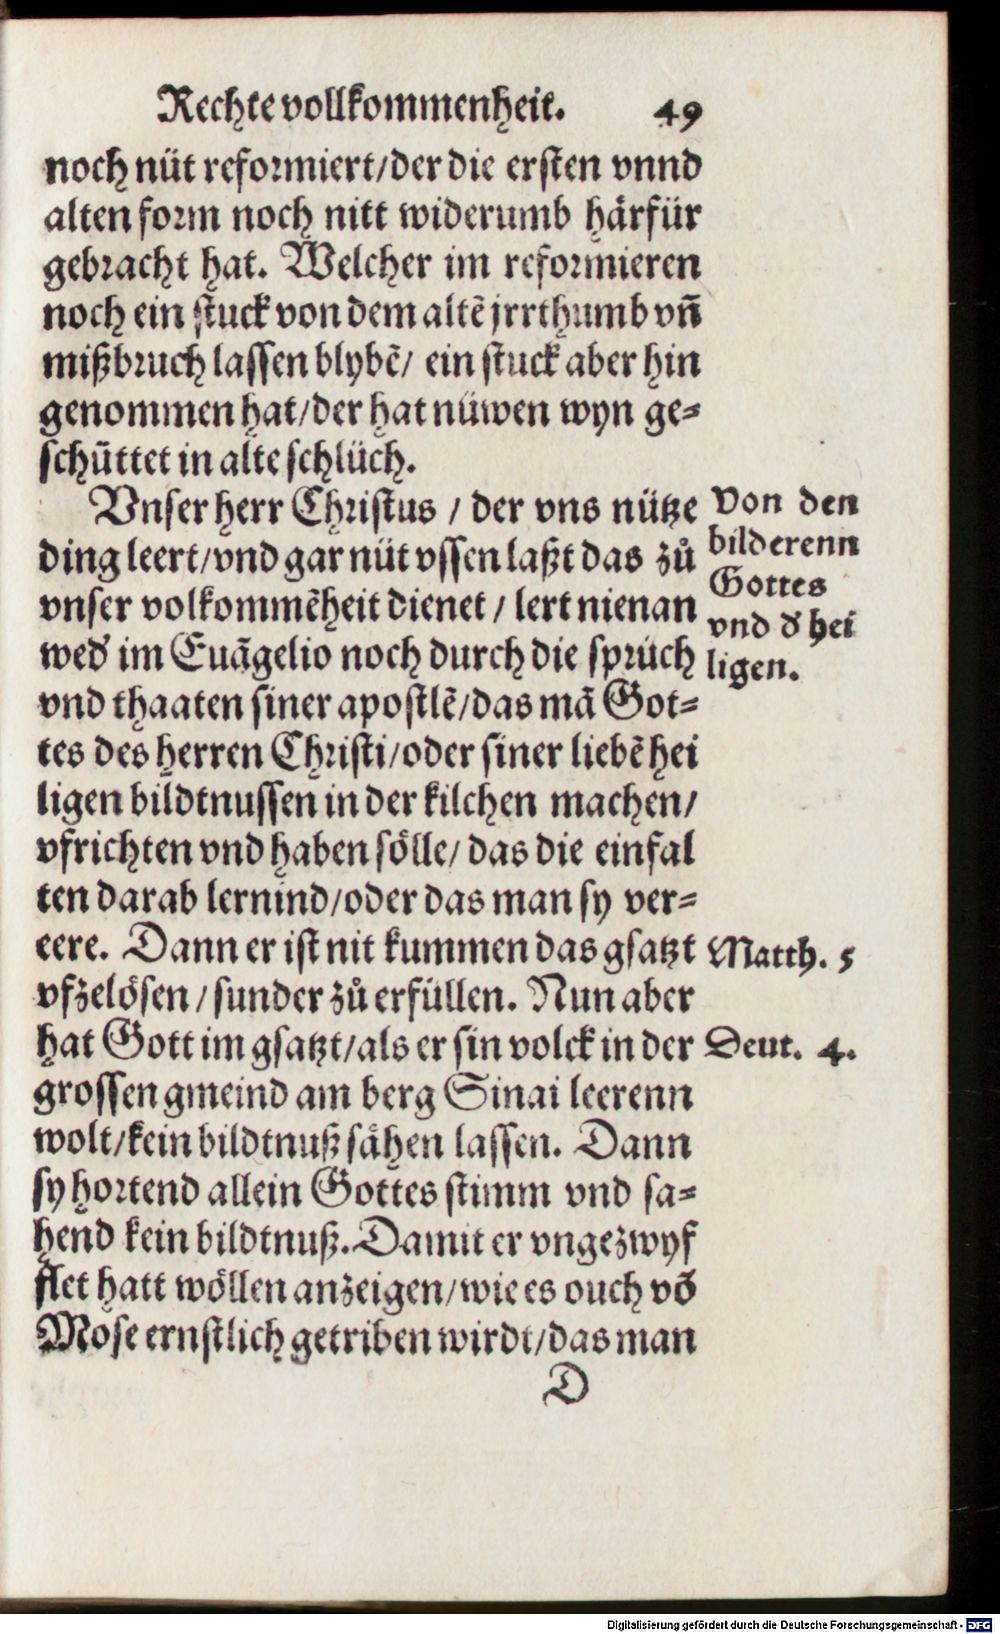 Rechte vollkommenheit. 49
noch nüt reformiert/der die ersten vnnd
alten form noch nitt widerumb härfür
gebracht hat. Welcher im reformieren
noch ein stuck von dem altẽ jrrthumb vñ
mißbruch lassen blybẽ/ ein stuck aber hin
genommen hat/der hat nüwen wyn ge⸗
schüttet in alte schlüch.
Vnser herr Christus / der vns nütze
ding leert/vnd gar nüt vssen laßt das zů
vnser volkommẽheit dienet / lert nienan
wed' im Euãgelio noch durch die sprüch
vnd thaaten siner apostlẽ/das mã Got⸗
tes des herren Christi/oder siner liebẽ hei
ligen bildtnussen in der kilchen machen/
vfrichten vnd haben sölle/ das die einfal
ten darab lernind/oder das man sy ver⸗
eere. Dann er ist nit kummen das gsatzt
vfzelösen / sunder zů erfüllen. Nun aber
hat Gott im gsatzt/als er sin volck in der
grossen gmeind am berg Sinai leerenn
wolt/kein bildtnuß sähen lassen. Dann
sy hortend allein Gottes stimm vnd sa⸗
hend kein bildtnuß. Damit er vngezwyf
flet hatt wöllen anzeigen/wie es ouch võ
Mose ernstlich getriben wirdt/das man
D
Von den
bilderenn
Gottes
vnd d' hei
ligen.
Matth. 5
Deut. 4.
Digitalisierung gefördert durch die Deutsche Forschungsgemeinschaft - DFG